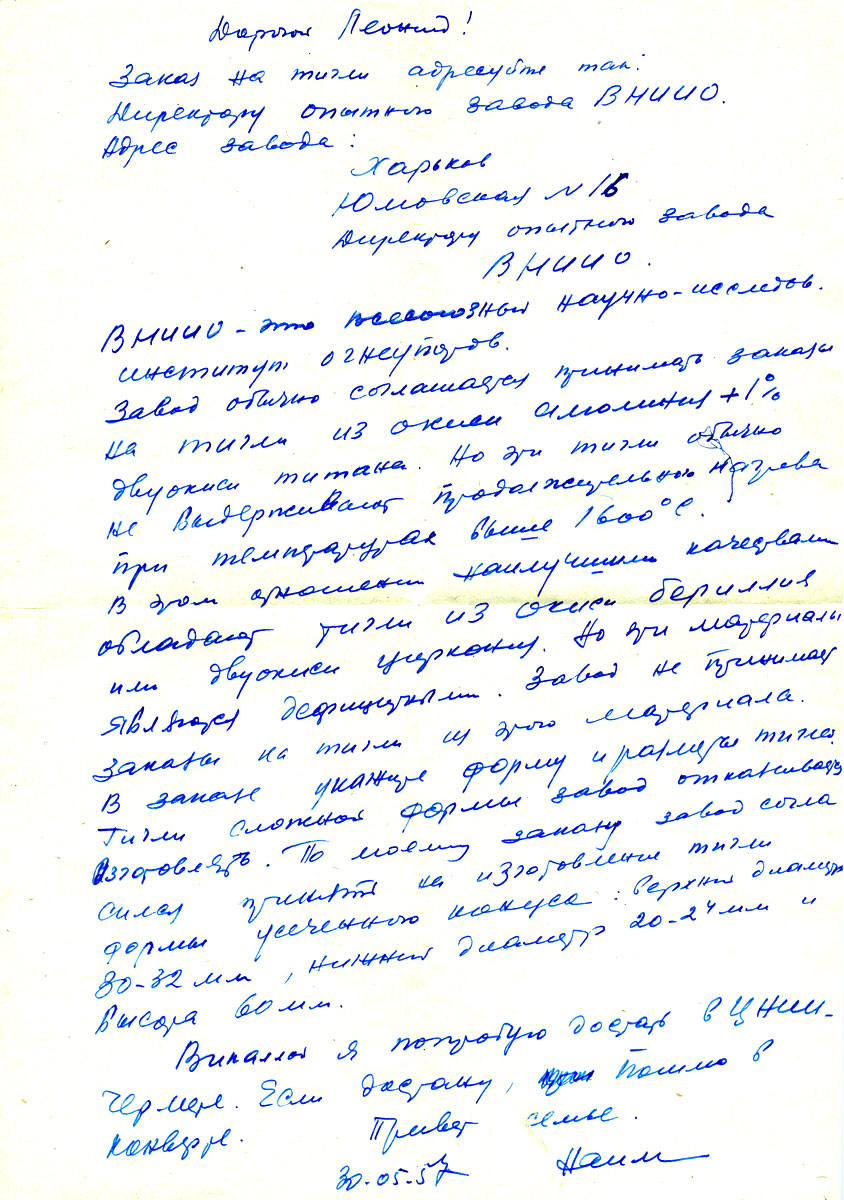 Дорогой Леонид!
Заказ на тигли адресуйте так:
Директору опытного завода ВНИИО.
Адрес завода:
Харьков
Юмовская N 16
Директору опытного завода
ВНИИО.
ВНИИО - это всесоюзный научно-исследов.
институт огнеупоров.
Завод обычно соглашается принимать заказы
на тигли из окиси алюминия + 1%
двуокиси титана. Но эти тигли обычно
не выдерживают продолжительного нагрева
при температурах выше 1600°C.
В этом отношении наилучшими качествами
обладают тигли из окиси бериллия
или двуокиси циркония. Но эти материалы
являются дефицитными. Завод не принимает
заказы на тигли из этого материала.
В заказе укажите форму и размеры тигля.
Тигли сложной формы завод отказывается
изготовлять. По моему заказу завод согла
сился принять на изготовление тигли
формы усеченного конуса: верхний диаметр
30-32 мм, нижний диаметр 20-24 мм и
высота 60 мм.
Викаллой я попробую достать в ЦНИИ-
Чермете. Если достану, пошлю в
конверте. Привет семье.
30-05-57 Наим